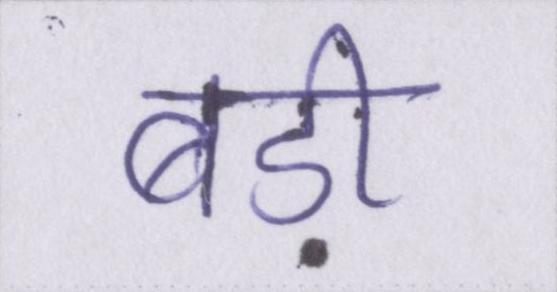 बड़ी